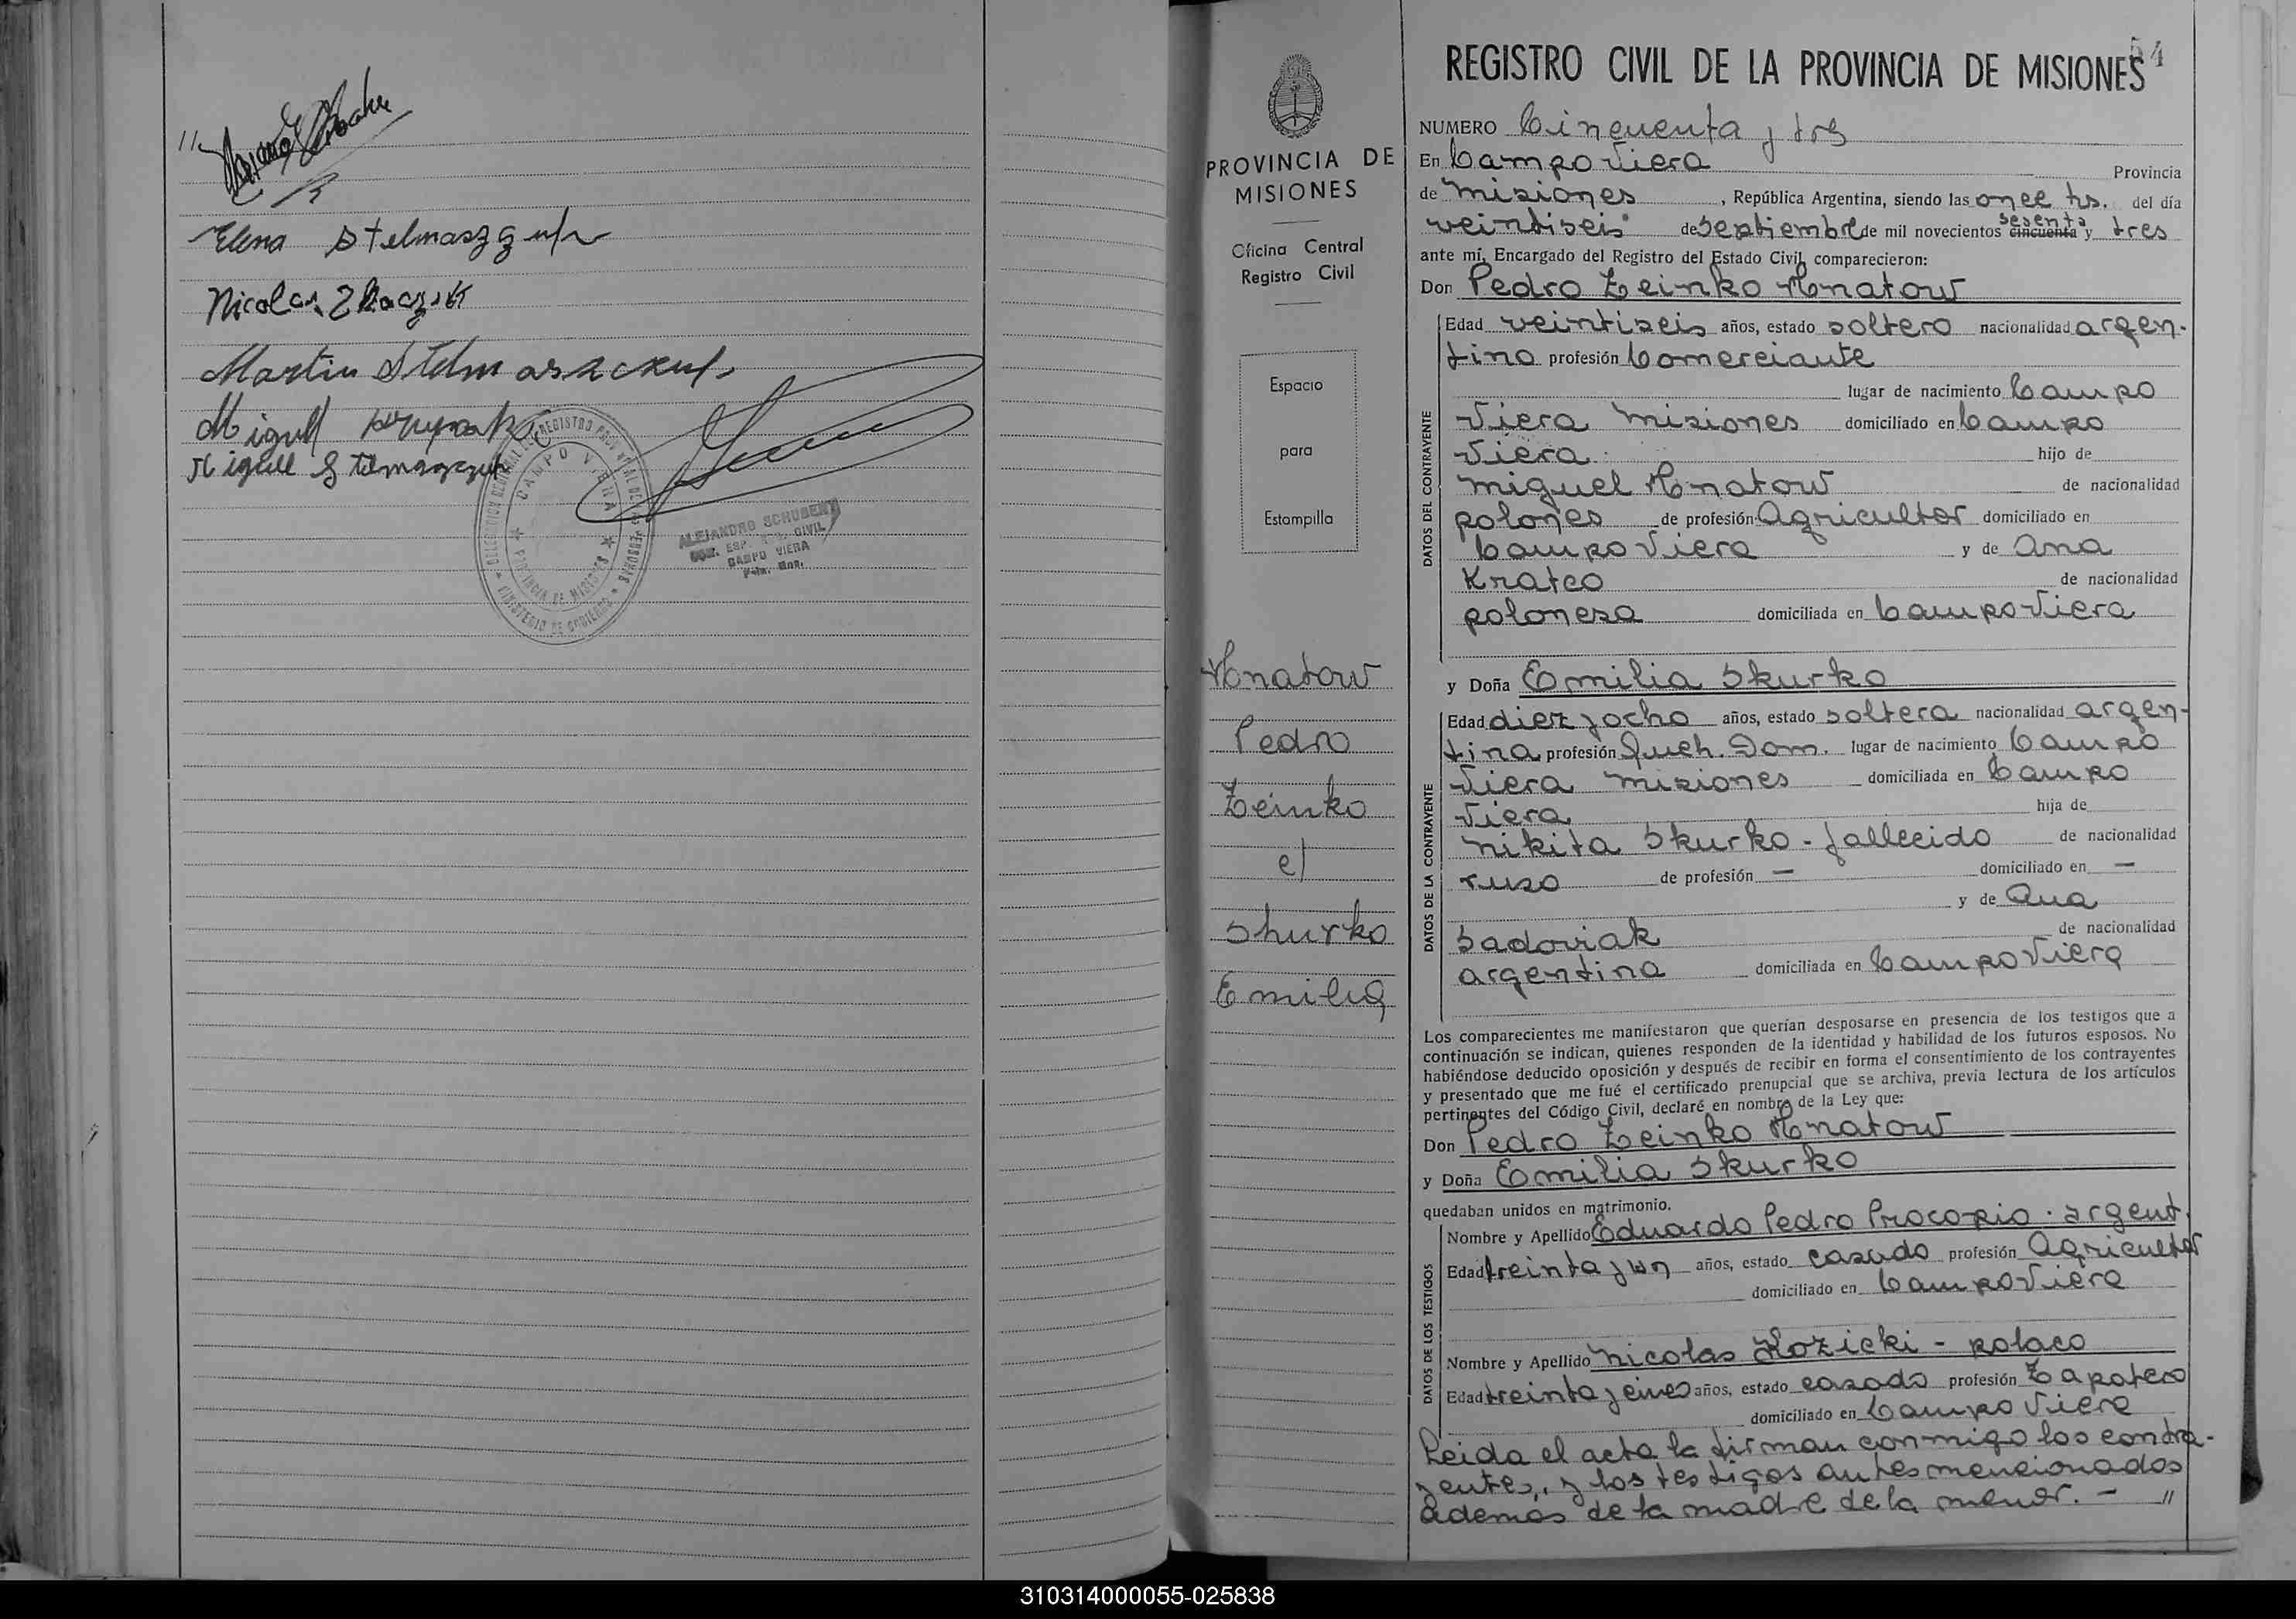 Elena Stelmaszczuk
Nicolas
Martin Stelmaszczuk
Miguel
Miguel Stelmaszczuk
CAMPO VIERA
PROVINCIA DE MISIONES
MINISTERIO DE GOBIERNO
ALEJANDRO SCHUBERT
CIVIL
CAMPO VIERA
PROVINCIA DE
MISIONES
Oficina Central
Registro Civil
Espacio
para
Estampilla
Hnatow
Pedro
Zeinko
c/
Skurko
Emilia
54
REGISTRO CIVIL DE LA PROVINCIA DE MISIONES
NUMERO Cincuenta y tres
En Campo Viera Provincia
de Misiones , República Argentina, siendo las once hs. del día
veintiseis de Septiembre de mil novecientos cincuenta sesenta y tres
ante mí, Encargado del Registro del Estado Civil, comparecieron:
Don Pedro Zeinko Hnatow
DATOS DEL CONTRAYENTE
Edad veintiseis años, estado soltero nacionalidad argen-
tino profesión Comerciante
lugar de nacimiento Campo
Viera Misiones domiciliado en Campo
Viera hijo de
Miguel Hnatow de nacionalidad
polones de profesión Agricultor domiciliado en
Campo Viera y de Ana
Kratco de nacionalidad
polonesa domiciliada en Campo Viera
y Doña Emilia Skurko
DATOS DE LA CONTRAYENTE
Edad diez y ocho años, estado soltera nacionalidad argen-
tina profesión Queh. Dom. lugar de nacimiento Campo
Viera Misiones domiciliada en Campo
Viera hija de
Nikita Skurko - fallecido de nacionalidad
ruso de profesión — domiciliado en —
y de Ana
Sadoviak de nacionalidad
argentina domiciliada en Campo Viera
Los comparecientes me manifestaron que querían desposarse en presencia de los testigos que a
continuación se indican, quienes responden de la identidad y habilidad de los futuros esposos. No
habiéndose deducido oposición y después de recibir en forma el consentimiento de los contrayentes
y presentado que me fué el certificado prenupcial que se archiva, previa lectura de los artículos
pertinentes del Código Civil, declaré en nombre de la Ley que:
Don Pedro Zeinko Hnatow
y Doña Emilia Skurko
quedaban unidos en matrimonio.
DATOS DE LOS TESTIGOS
Nombre y Apellido Eduardo Pedro Procopio - argent.
Edad treinta y un años, estado casado profesión Agricultor
domiciliado en Campo Viera
Nombre y Apellido Nicolas Kozicki - polaco
Edad treinta y cinco años, estado casado profesión Zapatero
domiciliado en Campo Viera
Leida el acta la firman conmigo los contra-
yentes, y los testigos antes mencionados
además de la madre de la menor. - //
310314000055-025838